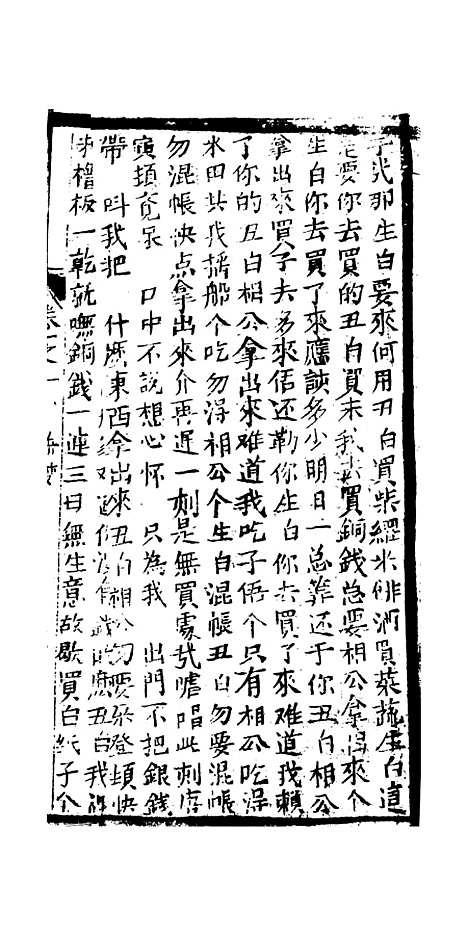 那生白要來何用丑白買柴糴米俳酒買菜蔬生白這
是要你去買的丑白買末我去買銅錢总要相公拿得來个
生白你去買了來應該多少明日一总筭还于你丑白相公
拿出來買子夫多來個还勒你生白你去買了來难道我賴
了你的丑白相公拿出來难道我吃子個个只有相公吃得
我搖船个吃勿得相公个生白混帳丑白勿要混帳
勿混帳快点拿出來介再遲一刻是無買處哉嗆唱此刻
口中不說想心怀 只為我 出門不把銀錢
帶 叫我把 什麽東西拿出來丑白相公勿要
櫓板一乾就嘸銅錢一連三日無生意故歇買白紙子个
卷之一